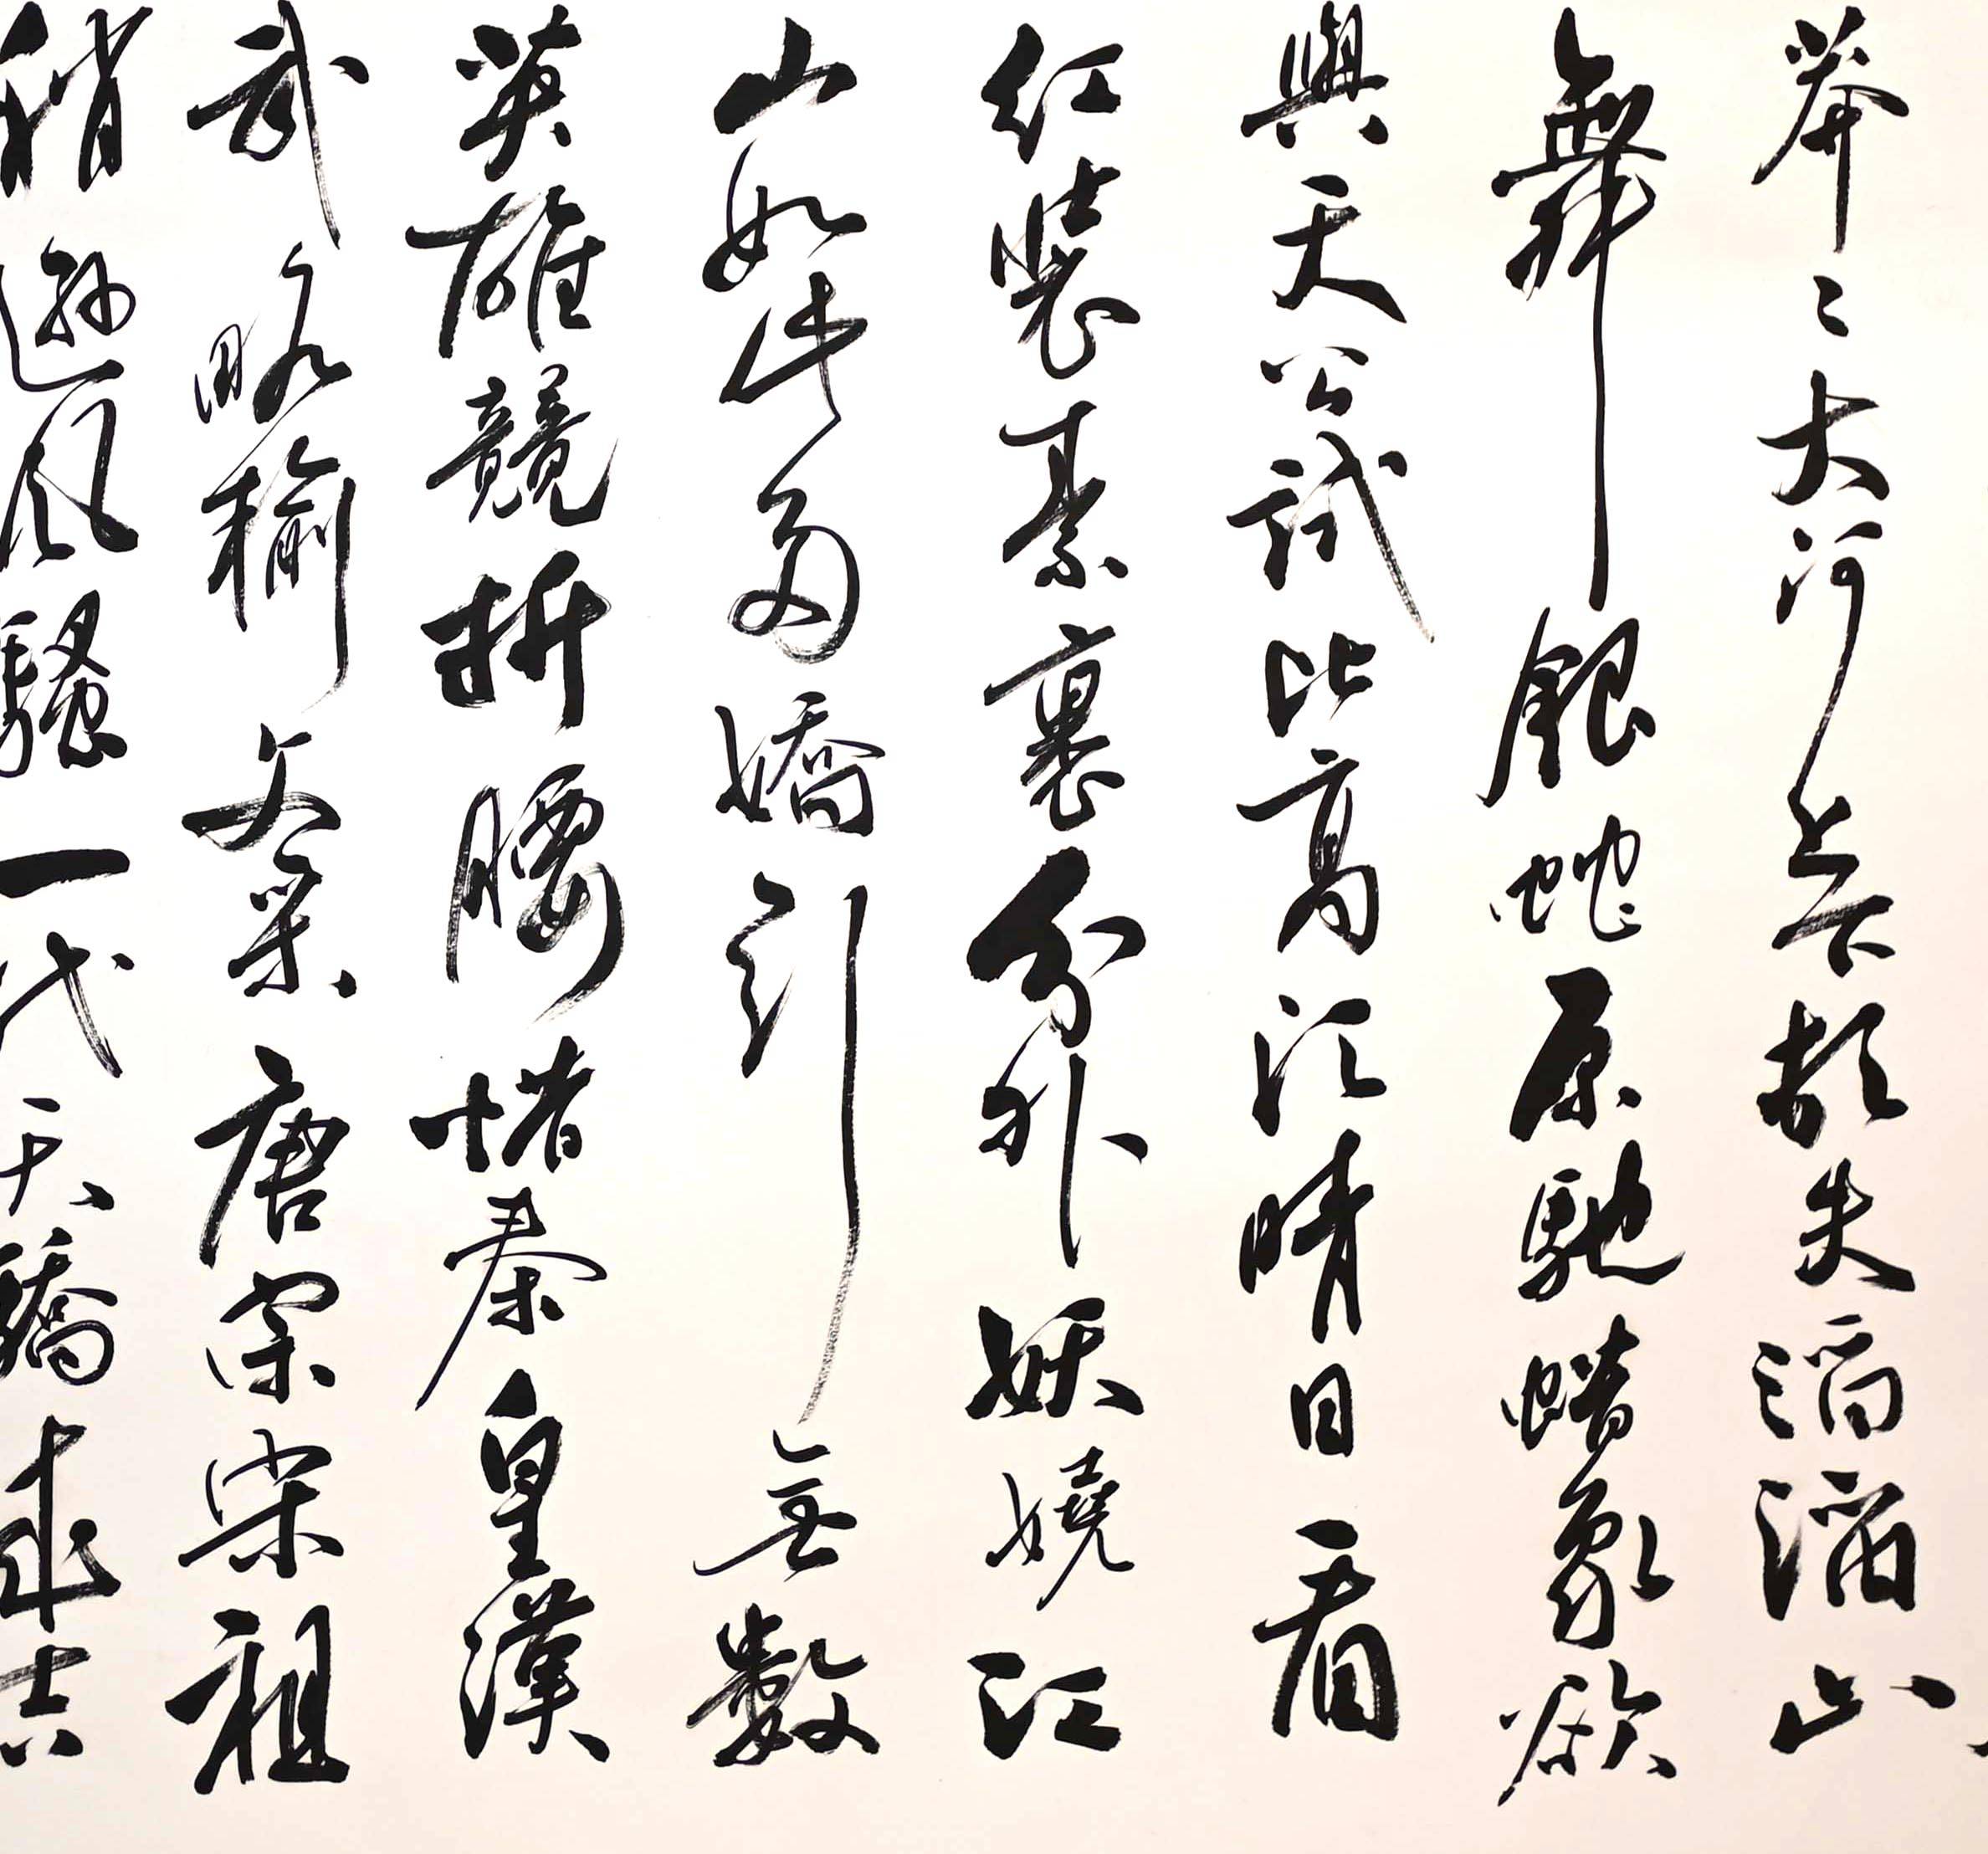 莽々大河上下頓失滔滔山
舞銀蛇原馳蠟象欲
與天公試比高須晴日看
紅裝素裹分外妖嬈江
山如此多嬌引無數
英雄競折腰惜秦皇漢
武略輸文采唐宗宋祖
稍遜風騷一代天驕成吉